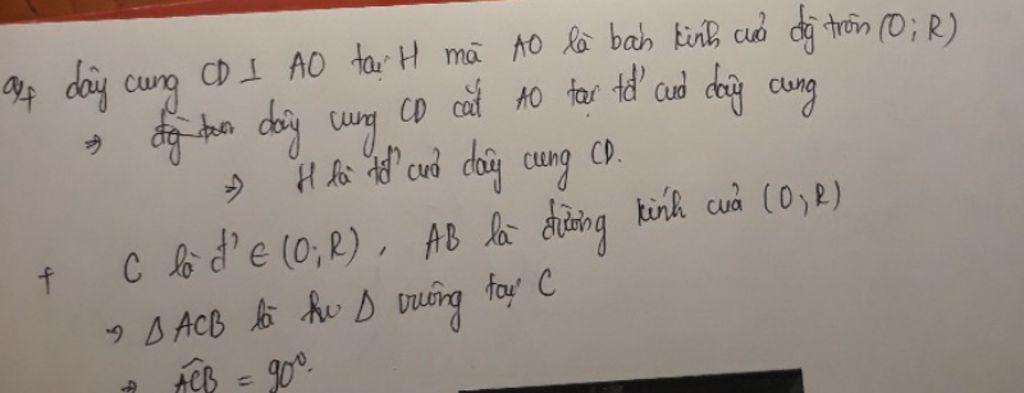 a, + dây cung CD ⊥ AO tại H mà AO là bán kính của đg tròn (O; R)
⇒ dây cung CD cắt AO tại tđ' của dây cung
⇒ H là tđ' của dây cung CD.
+ C là đ' ∈ (O; R), AB là đường kính của (O; R)
⇒ Δ ACB là Δ vuông tại C
⇒ ACB = 90°.